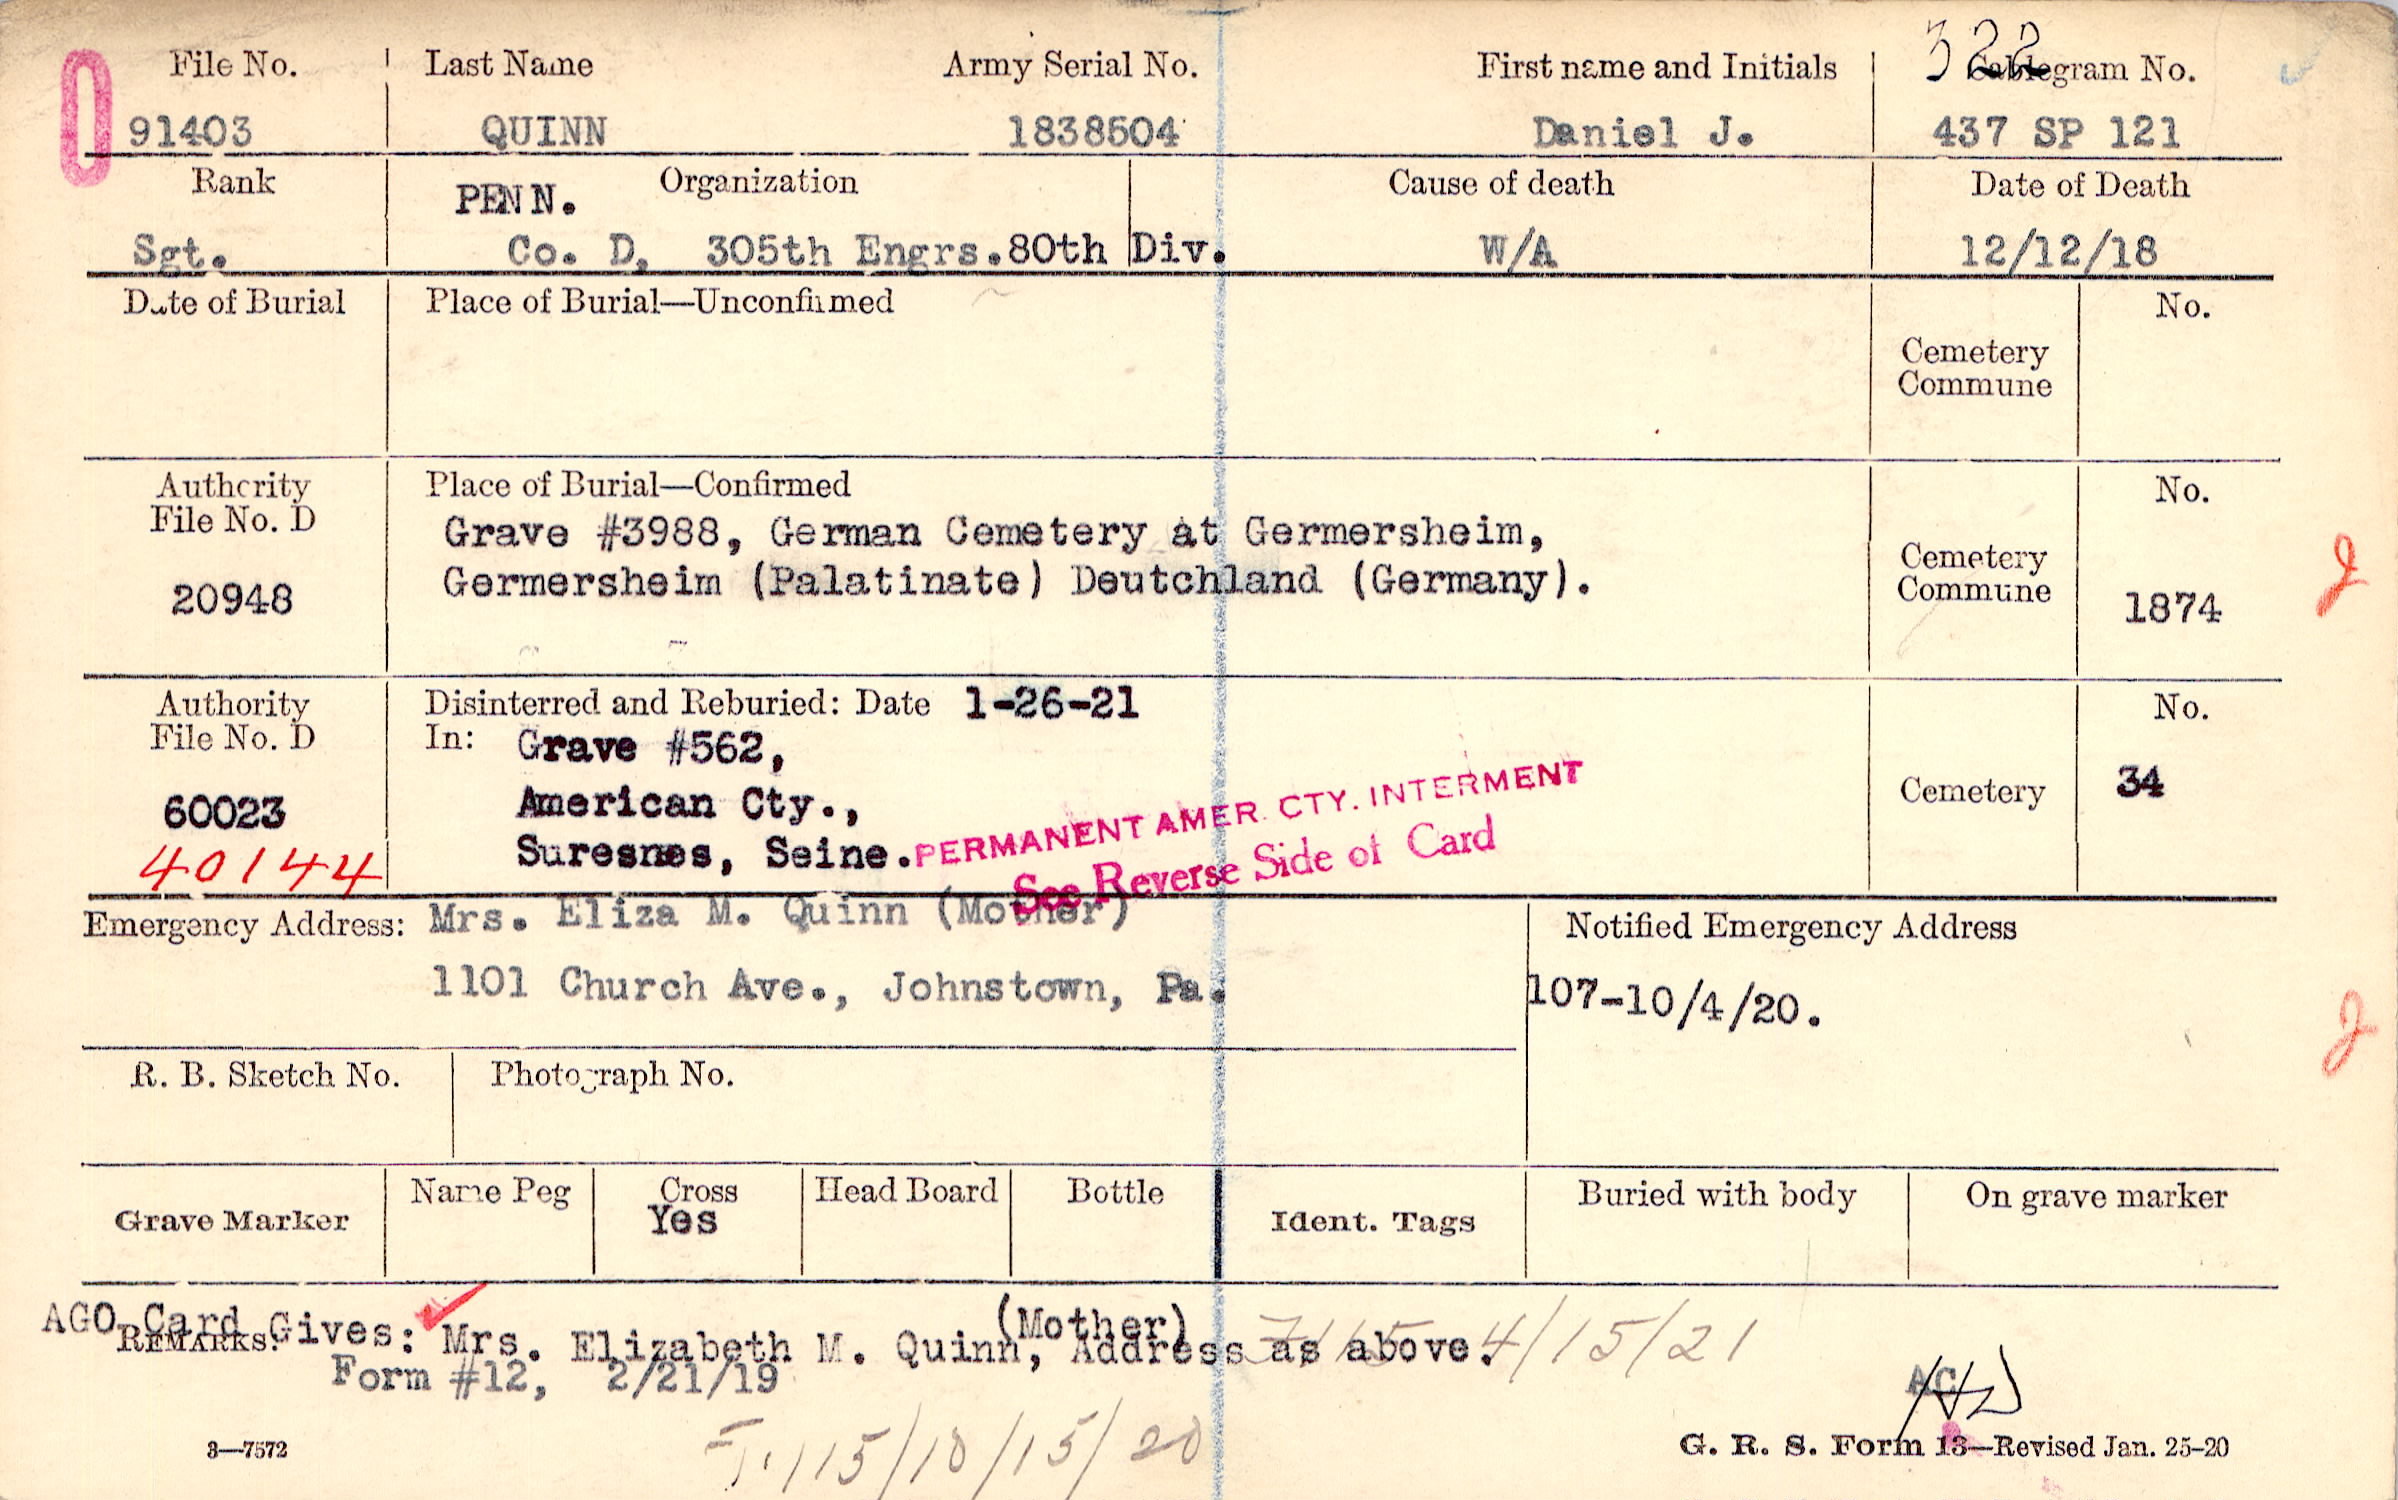 322
File No. Last Name Army Serial No. First name and Initials Cablegram No.
91403 QUINN 1838504 Daniel J. 437 SP 121
Rank PENN. Organization Cause of death Date of Death
Sgt. Co. D, 305th Engrs. 80th Div. W/A 12/12/18
Date of Burial Place of Burial—Unconfirmed No.
Cemetery
Commune
Authority Place of Burial—Confirmed No.
File No. D Grave #3988, German Cemetery at Germersheim,
Germersheim (Palatinate) Deutchland (Germany). Cemetery
Commune
20948 1874
J
Authority Disinterred and Reburied: Date 1-26-21 No.
File No. D In: Grave #562,
60023 American Cty., Cemetery 34
40144 Suresnes, Seine.
PERMANENT AMER. CTY. INTERMENT
See Reverse Side of Card
Emergency Address: Mrs. Eliza M. Quinn (Mother) Notified Emergency Address
1101 Church Ave., Johnstown, Pa. 107-10/4/20.
J
R. B. Sketch No. Photograph No.
Grave Marker Name Peg Cross Head Board Bottle Ident. Tags Buried with body On grave marker
Yes
AGO Card Gives: Mrs. Elizabeth M. Quinn, (Mother) Address as above. 4/15/21
REMARKS:
Form #12, 2/21/19
AC
115/10/15/20
3—7572 G. R. S. Form 13—Revised Jan. 25-20